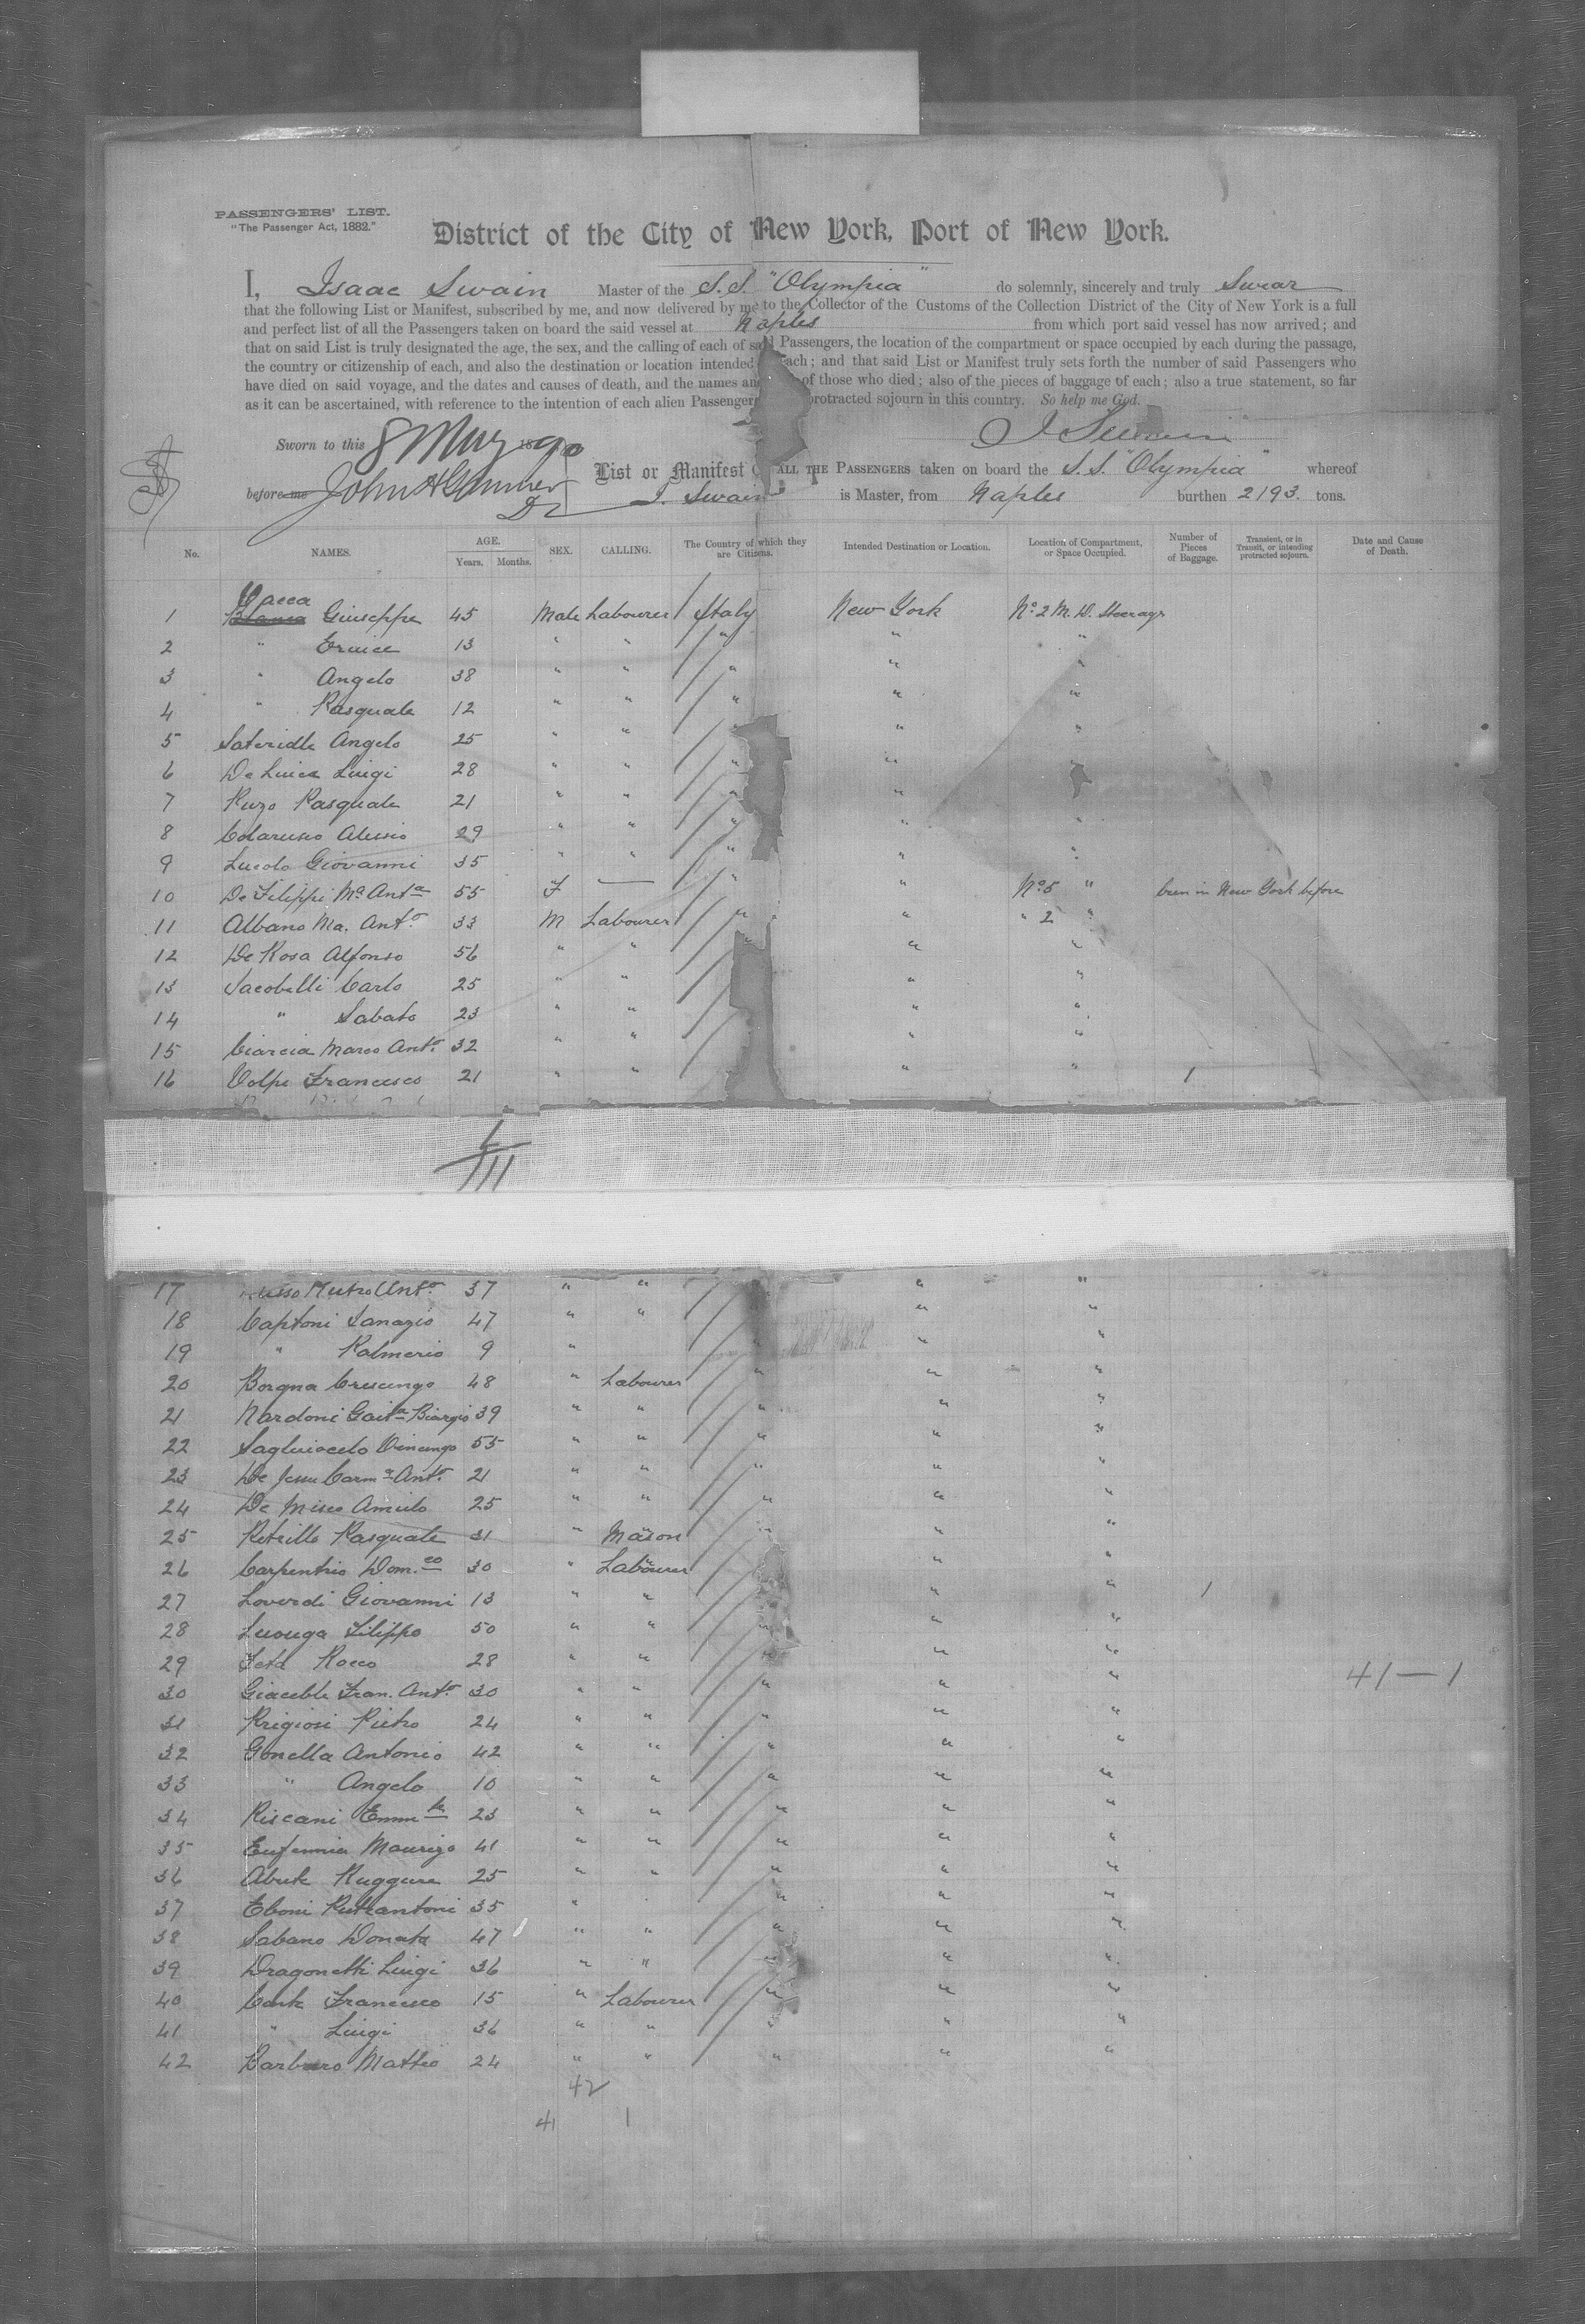 PASSENGERS' LIST.
"The Passenger Act, 1882."
District of the City of New York, Port of New York.
I, Isaac Swain Master of the S.S. "Olympia" do solemnly, sincerely and truly Swear
that the following List or Manifest, subscribed by me, and now delivered by me to the Collector of the Customs of the Collection District of the City of New York is a full
and perfect list of all the Passengers taken on board the said vessel at Naples from which port said vessel has now arrived; and
that on said List is truly designated the age, the sex, and the calling of each of said Passengers, the location of the compartment or space occupied by each during the passage,
the country or citizenship of each, and also the destination or location intended each; and that said List or Manifest truly sets forth the number of said Passengers who
have died on said voyage, and the dates and causes of death, and the names an of those who died; also of the pieces of baggage of each; also a true statement, so far
as it can be ascertained, with reference to the intention of each alien Passenger protracted sojourn in this country. So help me God.
Sworn to this 8 May 1890 I Swain
List or Manifest ALL THE PASSENGERS taken on board the S.S. "Olympia" whereof
before me John H Gunner I. Swain is Master, from Naples burthen 2193 tons.
No. NAMES. AGE. Years. Months. SEX. CALLING. The Country of which they are Citizens. Intended Destination or Location. Location of Compartment, or Space Occupied. Number of Pieces of Baggage. Transient, or in Transit, or intending protracted sojourn. Date and Cause of Death.
Vacca
1 Giuseppe 45 Male Labourer Italy New York No. 2 M. D. Steerage
2 " 13 " " " " "
3 " Angelo 38 " " " " "
4 " Pasquale 12 " " " " "
5 Angelo 25 " " " "
6 De Luica Luigi 28 " " " "
7 Ruzo Pasquale 21 " " " "
8 Colarusso Alessio 29 " " " " "
9 Lucolo Giovanni 35 " " " " "
10 De Filippi Ma Anta 55 F — " " No. 5 " been in New York before
11 Albano Ma. Anto. 33 M Labourer " " " 2 "
12 De Rosa Alfonso 56 " " " "
13 Jacobelli Carlo 25 " " " "
14 " Sabato 23 " " " "
15 Ciarcia Marco Anto. 32 " " " "
16 Volpe Francesco 21 " " " " 1
111
17 Anto. 37 " " " "
18 Captoni Sanazio 47 " " " "
19 " Palmerio 9 " " " "
20 Borgna Crescenzo 48 " Labourer " " "
21 Nardoni Gaita Biargio 39 " " " " "
22 Vincenzo 55 " " " " "
23 De Jesu Carma Anto. 21 " " " " "
24 De Misco 25 " " " " "
25 Petrillo Pasquale 31 " Mason " "
26 Carpentrio Dom.co 30 " Labourer " "
27 Loverdi Giovanni 13 " " " " 1
28 Filippo 50 " " " " "
29 Feta Rocco 28 " " " " "
41—1
30 Fran. Anto. 30 " " " " "
31 Prigiosi Pietro 24 " " " " "
32 Gonella Antonio 42 " " " " "
33 " Angelo 10 " " " " "
34 Piscani Emmle 23 " " " " "
35 Eufemia Maurizo 41 " " " " "
36 25 " " " " "
37 Eboni Pietrantoni 35 " " " "
38 Sabano Donato 47 " " " " "
39 Dragonetti Luigi 36 " " " " "
40 Conte Francesco 15 " Labourer " " "
41 " Luigi 36 " " " " "
42 Barbaro Matteo 24 " " " " "
42
41 1